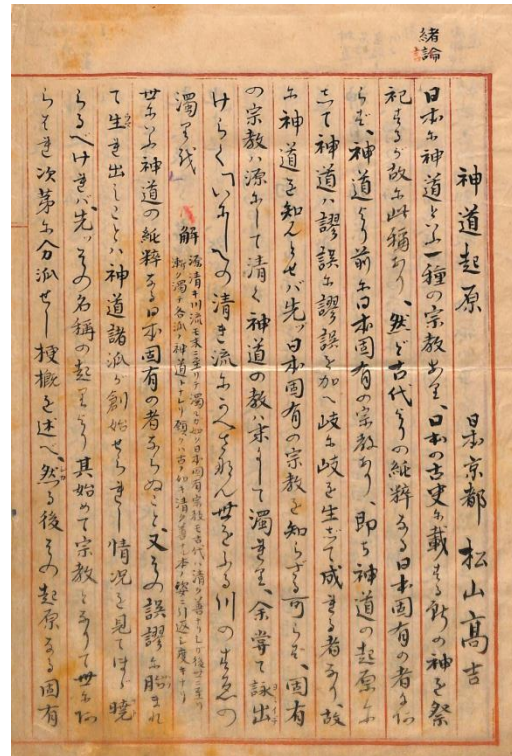 緒論
神道起原　日本京都 松山高吉
日本に神道といふ一種の宗教あり、日本の古史に載する所の神を祭
祀するが故に此稱あり、然ど古代よりの純粹なる日本固有の者にあ
らず、神道より前に日本固有の宗教あり、即ち神道の起原にし
して神道ハ謬誤に謬誤を加へ岐に岐を生じて成れる者なり、故
に神道を知んとせバ先ッ日本固有の宗教を知らずる可らず、固有
の宗教ハ源にして清く神道の教ハ末にして濁れり、余嘗て詠出
けらく「いにしへの清き流にかへさなん世をふる川の すゑの
濁りを 解 源清キ川流モ末ニ至リテ濁ルガ如ク日本固有ノ宗教モ古代ハ清ク善ナリシガ後世ニ至リ
漸ク濁テ各派ノ神道トナレリ願クハ古ノ如キ清ク善キ本ノ姿ニ引返シ度キナリ
世にいふ神道の純粹なる日本固有の者ならぬこと、又その誤謬に胎まれ
て生れ出しことハ神道諸派が創始せられし情况を見てほゞ曉
らるべければ、先ッその名稱の起りより其始めて宗教となりて世にあ
らはれ次第に分派せし梗概を述べ、然る後その起原なる固有